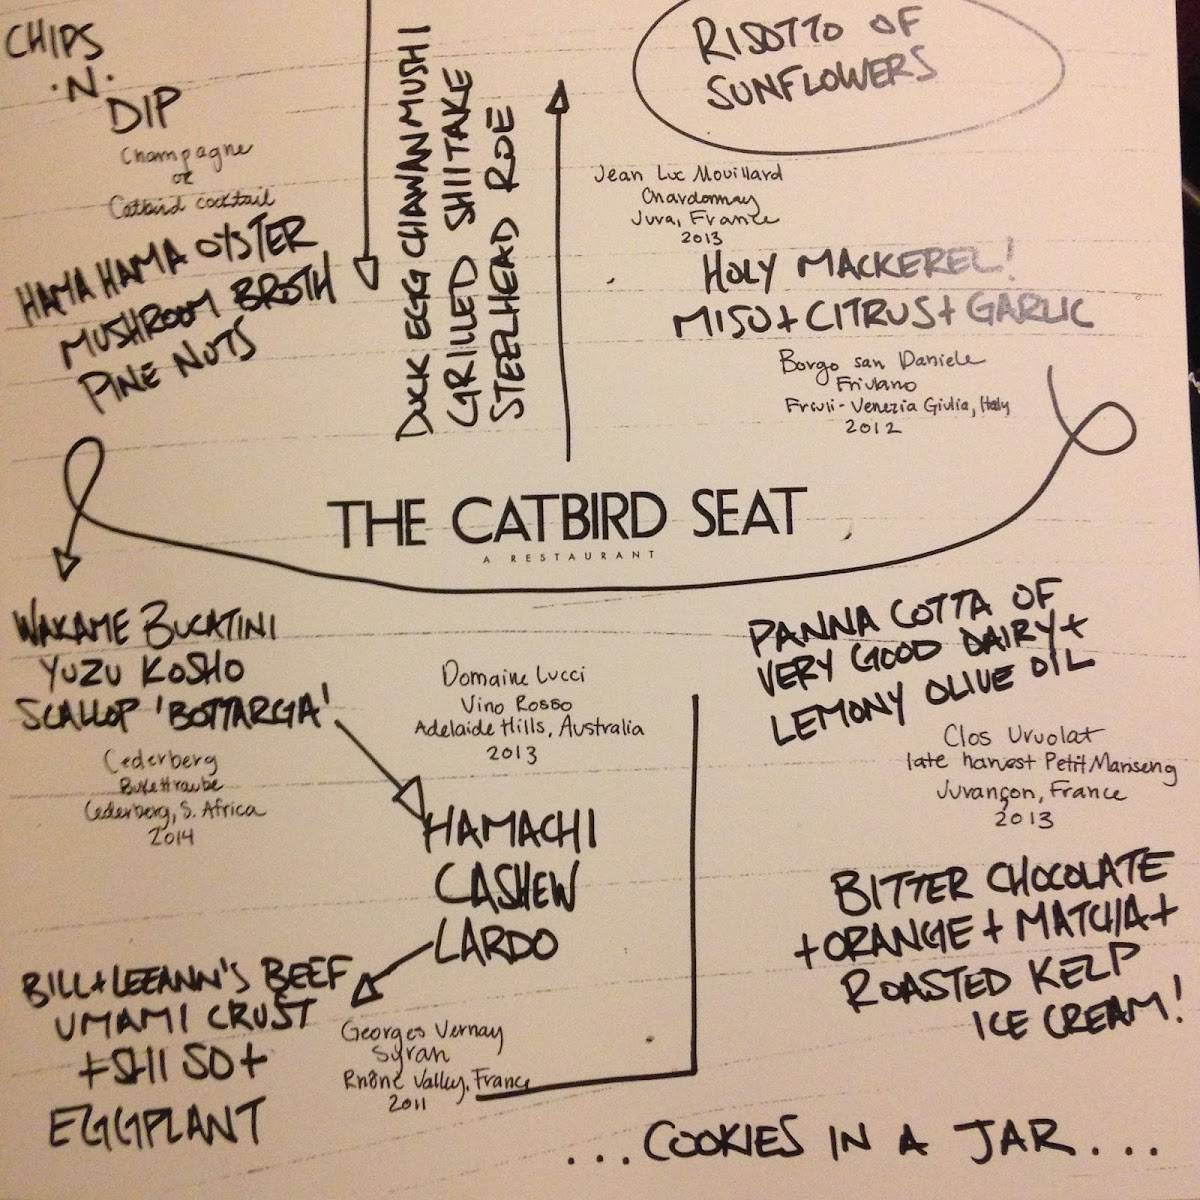 CHIPS
·N·
DIP
Champagne
or
Catbird cocktail
HAMA HAMA OYSTER
MUSHROOM BROTH
PINE NUTS
DUCK EGG CHAWANMUSHI
GRILLED SHIITAKE
STEELHEAD ROE
RISOTTO OF
SUNFLOWERS
Jean Luc Mouillard
Chardonnay
Jura, France
2013
HOLY MACKEREL!
MISO+CITRUS+GARLIC
Borgo san Daniele
Friulano
Friuli-Venezia Giulia, Italy
2012
THE CATBIRD SEAT
A RESTAURANT
WAKAME BUCATINI
YUZU KOSHO
SCALLOP 'BOTTARGA'
Cederberg
Bukettraube
Cederberg, S. Africa
2014
HAMACHI
CASHEW
LARDO
Domaine Lucci
Vino Rosso
Adelaide Hills, Australia
2013
BILL+LEEANN'S BEEF
UMAMI CRUST
+SHISO+
EGGPLANT
Georges Vernay
Syrah
Rhône Valley, France
2011
PANNA COTTA OF
VERY GOOD DAIRY+
LEMONY OLIVE OIL
Clos Uroulat
late harvest Petit Manseng
Jurançon, France
2013
BITTER CHOCOLATE
+ORANGE+MATCHA+
ROASTED KELP
ICE CREAM!
...COOKIES IN A JAR...